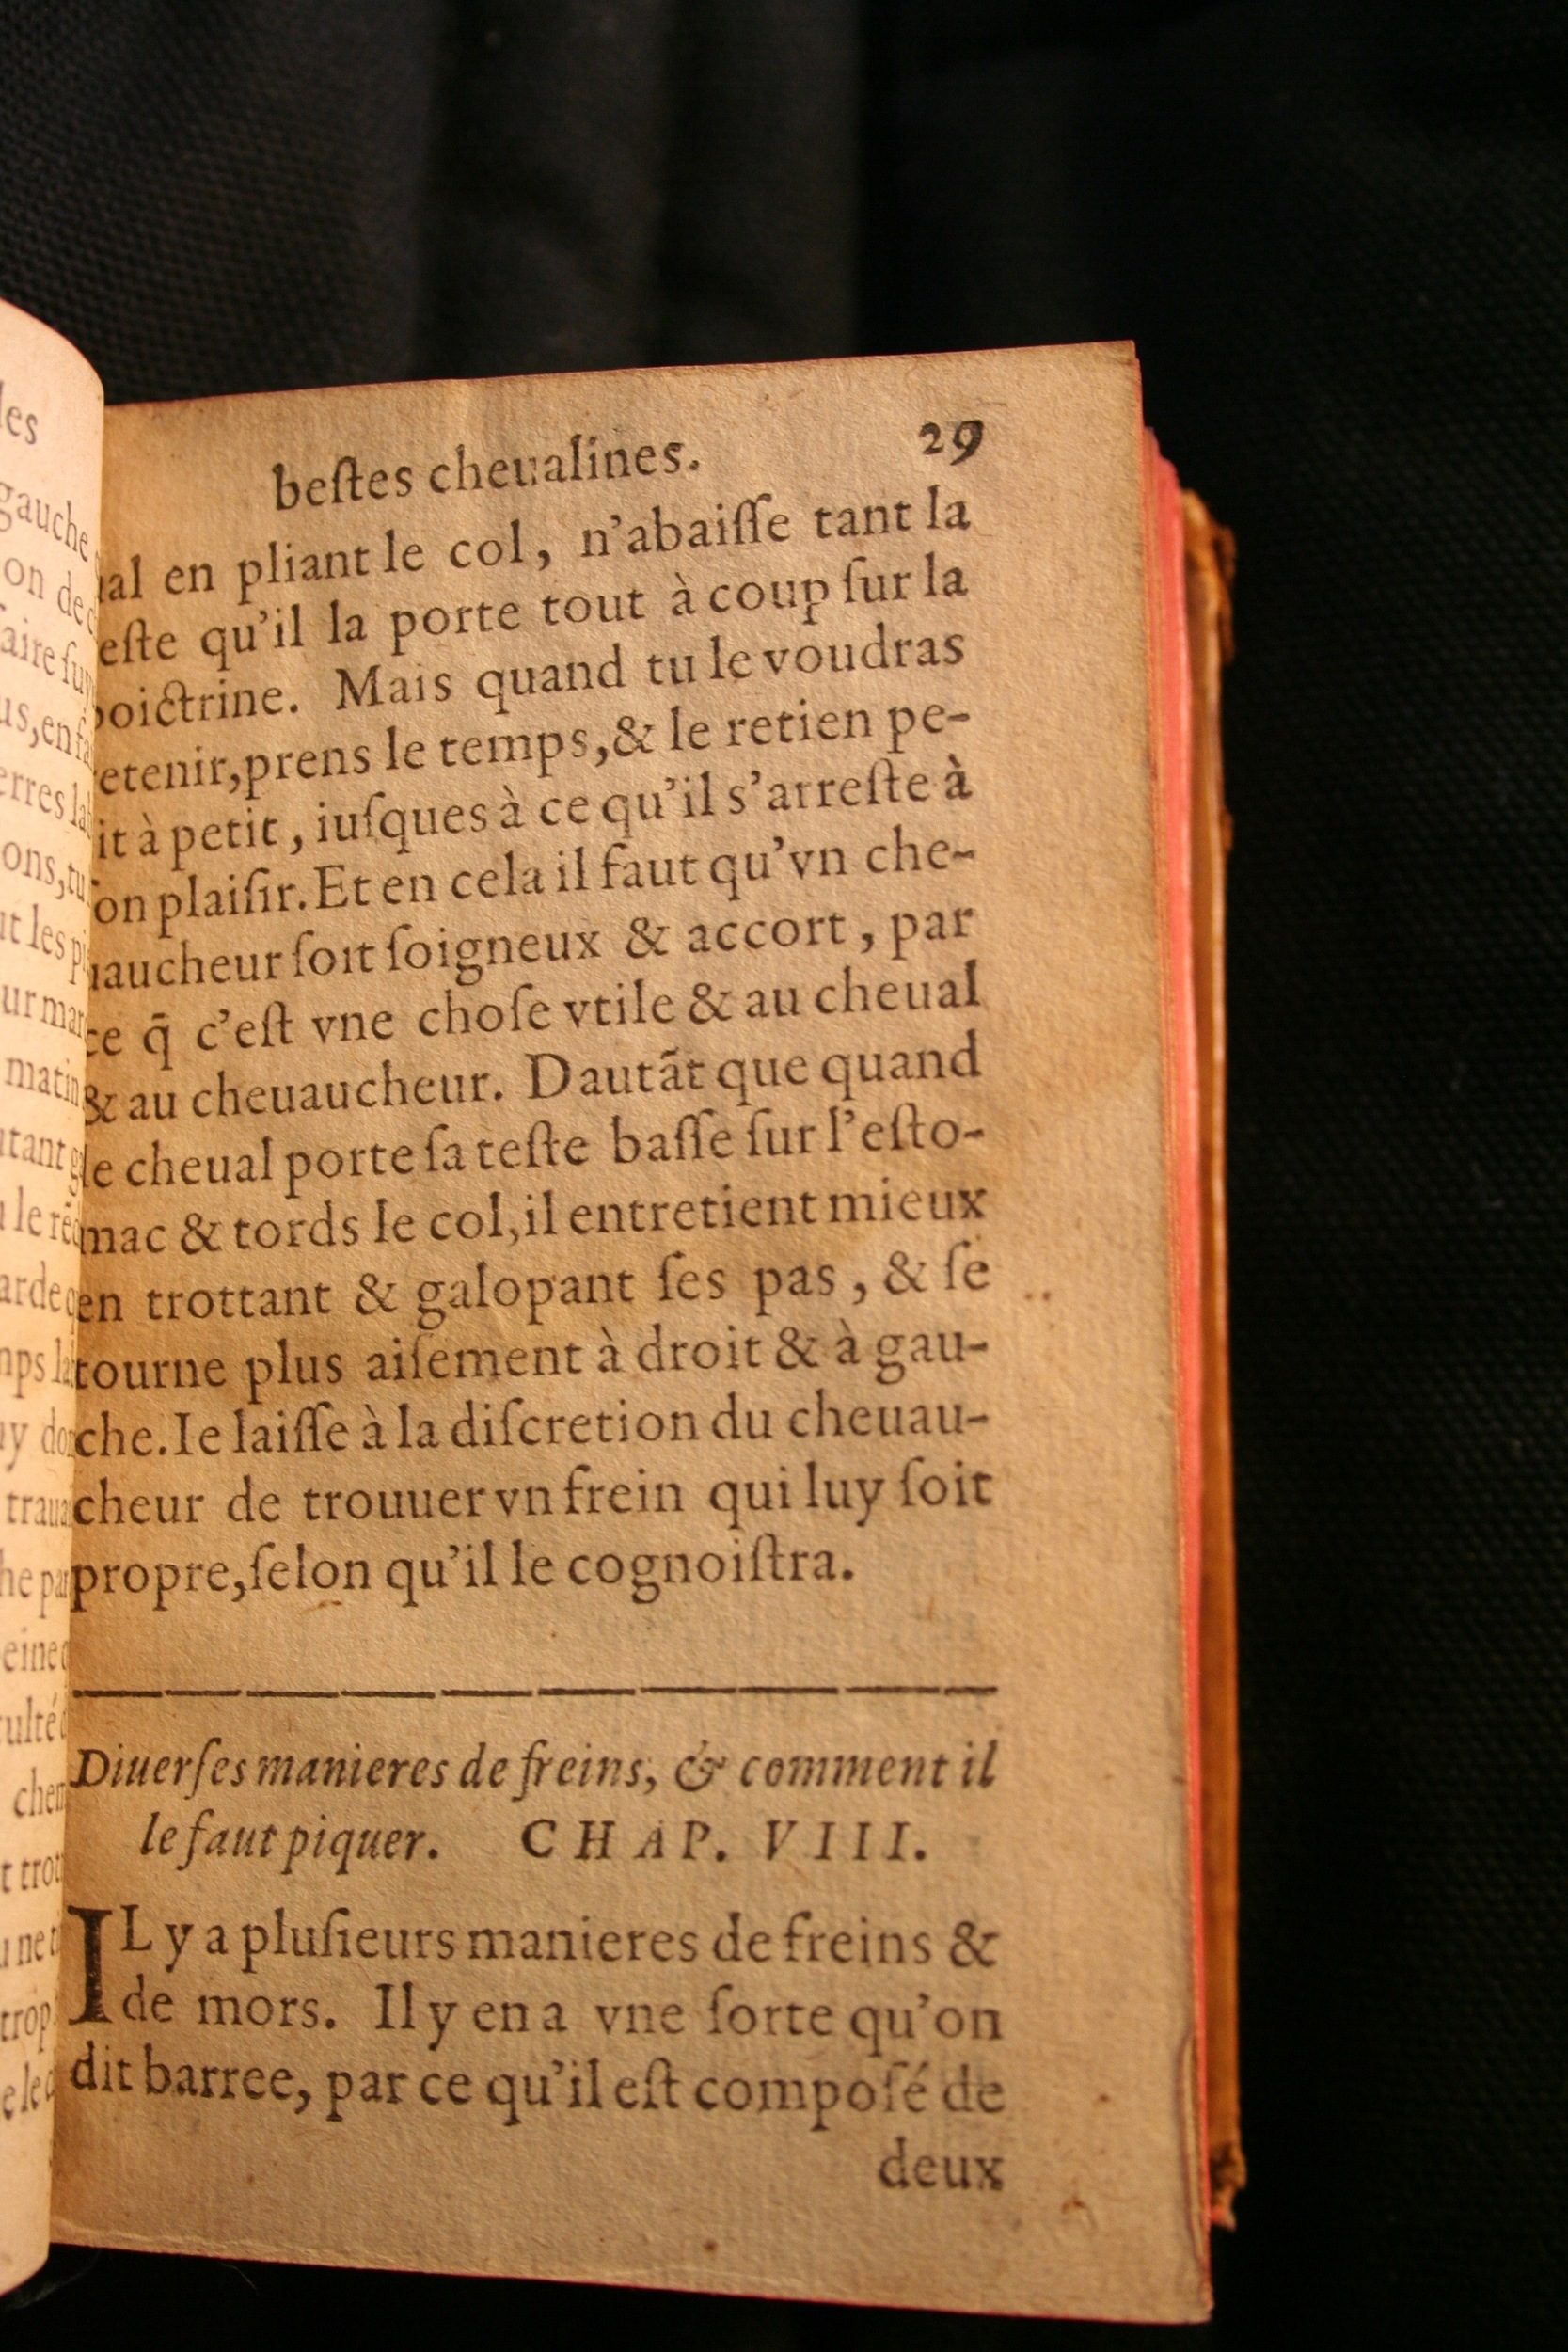 beſtes cheualines. 29
al en pliant le col, n'abaiſſe tant la
eſte qu'il la porte tout à coup ſur la
poictrine. Mais quand tu le voudras
retenir, prens le temps, & le retien pe-
it à petit, iuſques à ce qu'il s'arreſte à
ſon plaiſir. Et en cela il faut qu'vn che-
uaucheur ſoit ſoigneux & accort, par
ce q̄ c'eſt vne choſe vtile & au cheual
& au cheuaucheur. Dautãt que quand
le cheual porte ſa teſte baſſe ſur l'eſto-
mac & tords le col, il entretient mieux
en trottant & galopant ſes pas, & ſe
tourne plus aiſement à droit & à gau-
che. Ie laiſſe à la diſcretion du cheuau-
cheur de trouuer vn frein qui luy ſoit
propre, ſelon qu'il le cognoiſtra.
Diuerſes manieres de freins, & comment il
le faut piquer. CHAP. VIII.
IL y a pluſieurs manieres de freins &
de mors. Il y en a vne ſorte qu'on
dit barree, par ce qu'il eſt compoſé de
deux